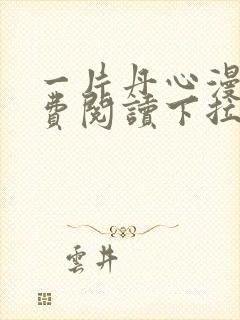 一片丹心漫
費閱讀下拉
雲井